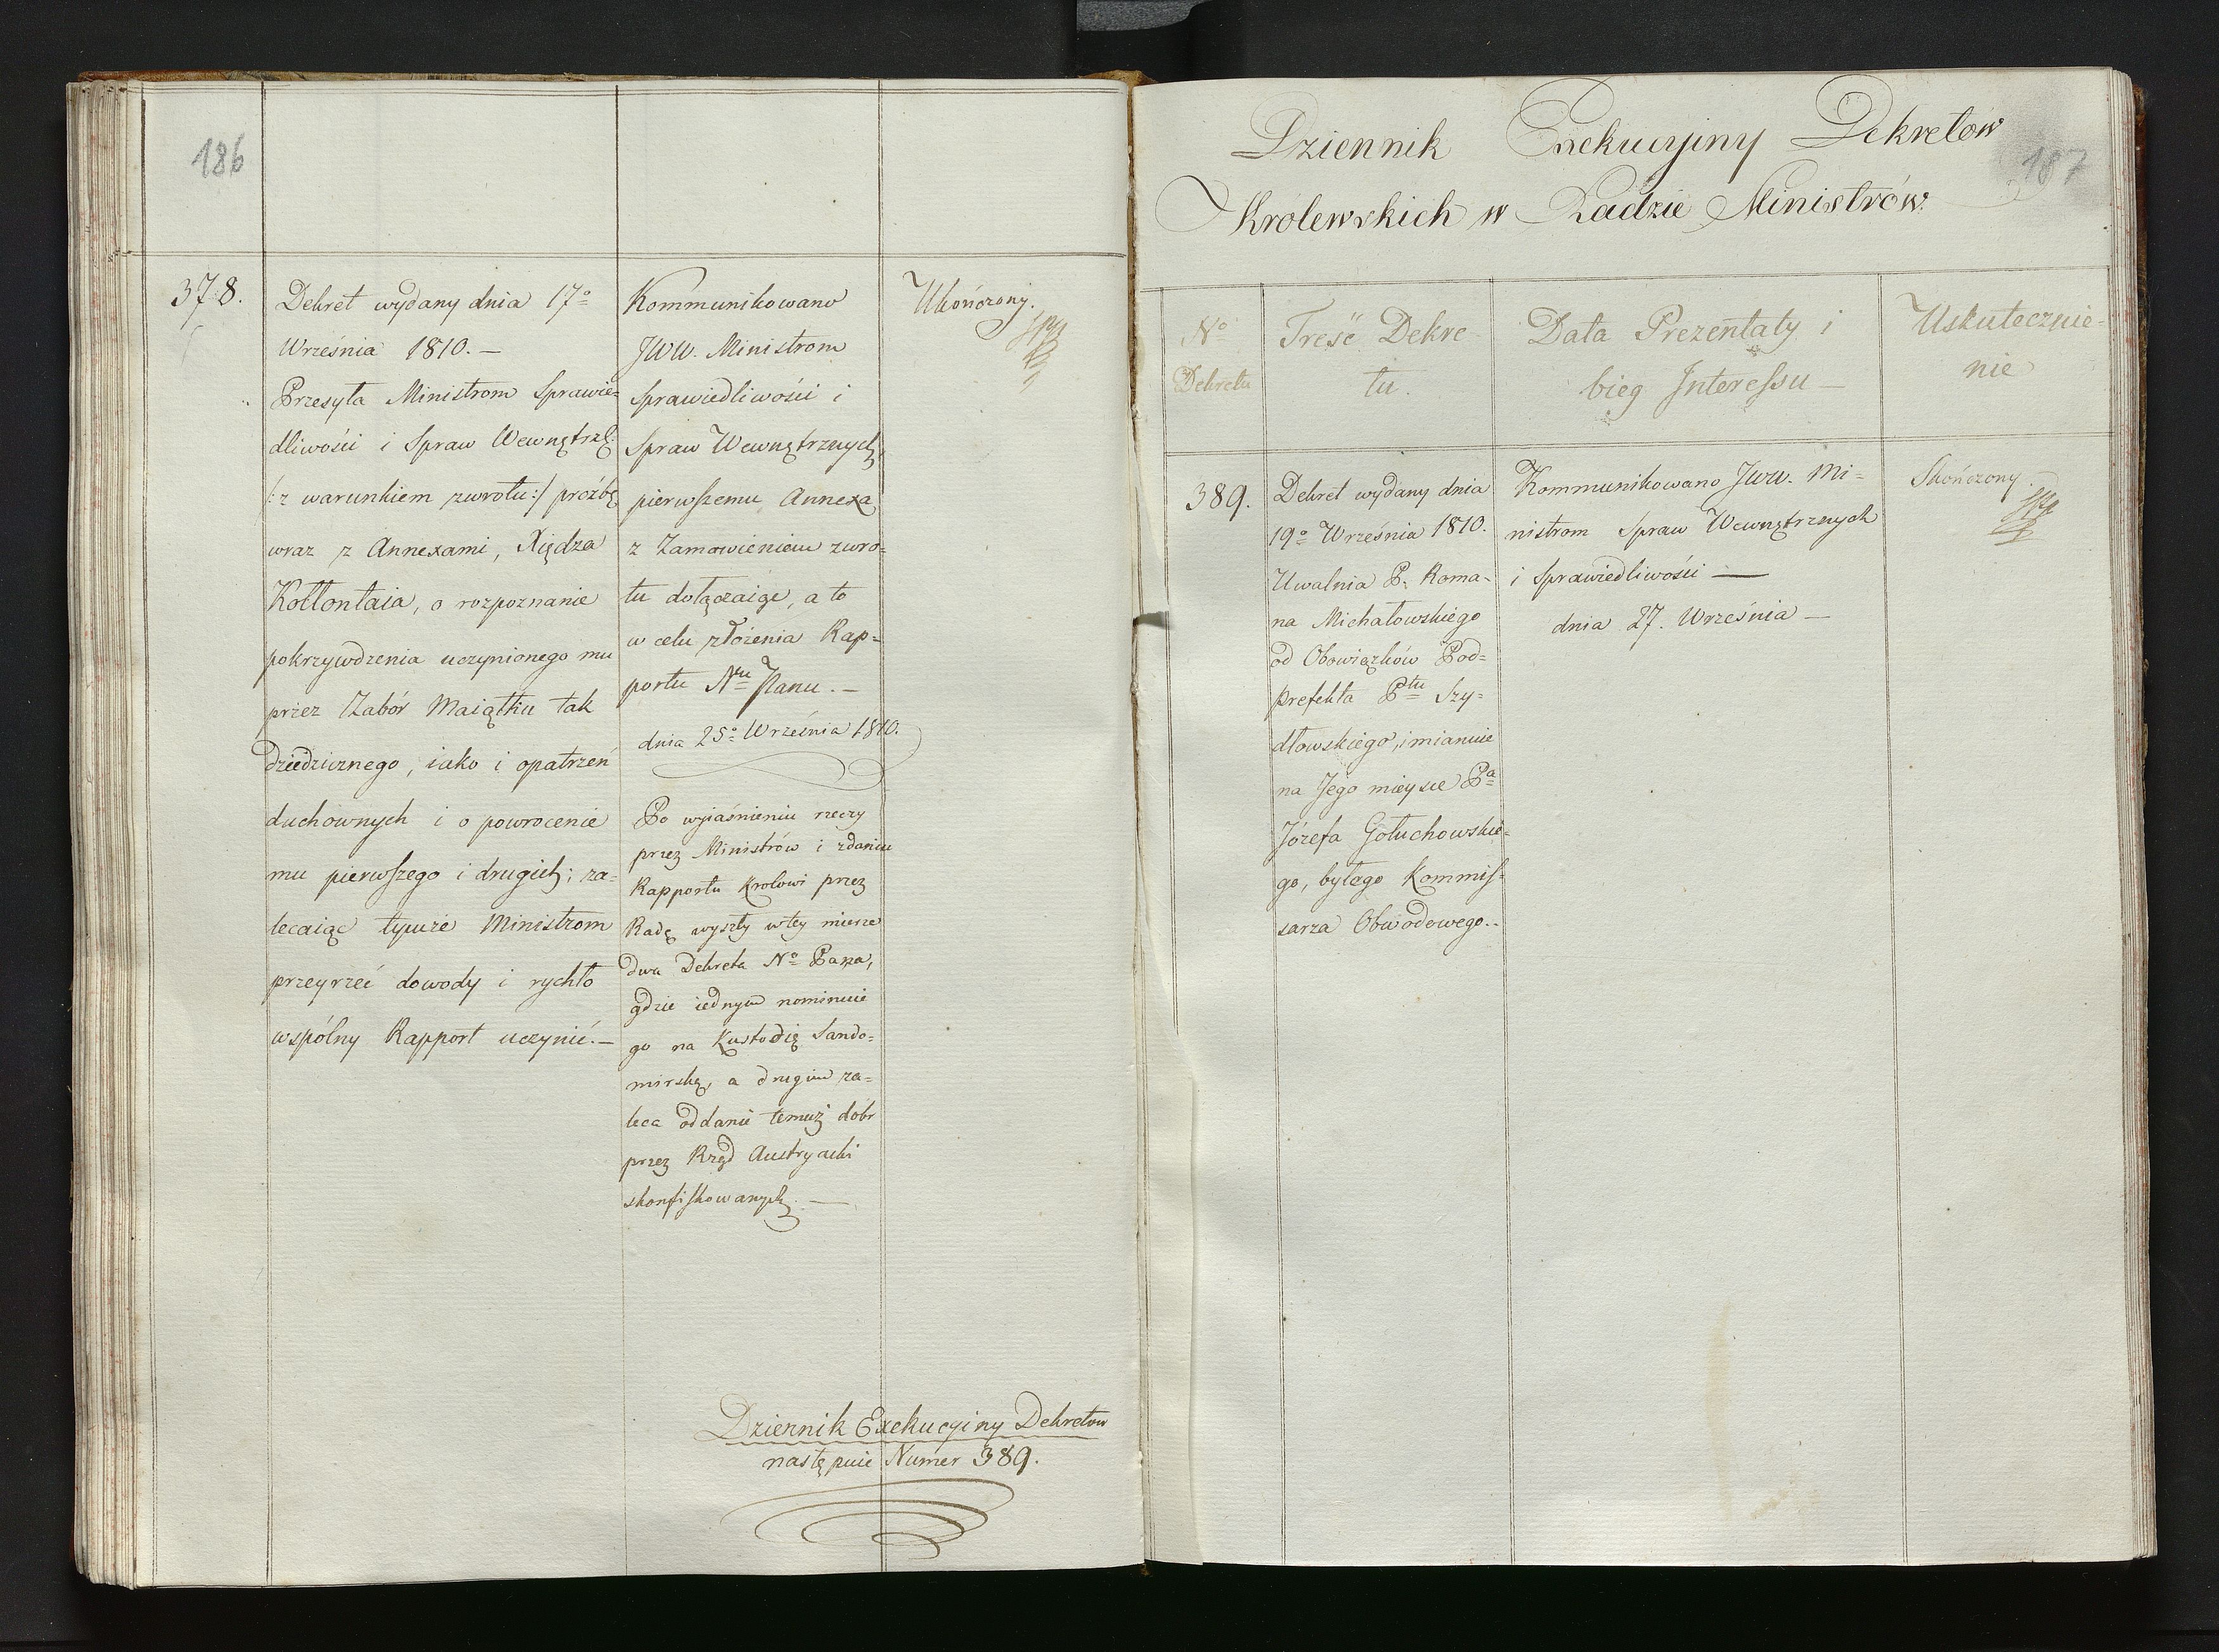 186
378.
Dekret wydany dnia 17º
Września 1810. —
Przesyła Ministrom Sprawie=
dliwości i Spraw Wewnętrz:
/:z warunkiem zwrotu:/ proźbę
wraz z Annexami, Xiędza
Kołłontaia, o rozpoznanie
pokrzywdzenia uczynionego mu
przez Zabór Maiątku tak
dziedzicznego, iako i opatrzeń
duchownych i o powrocenie
mu pierwszego i drugich; za=
lecaiąc tymże Ministrom
przeyrzeć dowody i rychło
wspólny Rapport uczynić. —
Kommunikowano
JWW. Ministrom
Sprawiedliwości i
Spraw Wewnętrznych,
pierwszemu Annexa
z Zamowieniem zwro=
tu dołączaiąc, a to
w celu złożenia Rap=
portu Nru Panu. —
dnia 25º Września 1810.
Po wyiaśnieniu rzeczy
przez Ministrów i zdaniu
Rapportu Krolowi przez
Radę wyszły w tey mierze
dwa Dekreta Nº Pana,
gdzie iednym nominuie
go na Kustodią Sando=
mirską, a drugim za=
leca oddanie temuż dóbr
przez Rząd Austryacki
skonfiskowanych. —
Ukończony.
Dziennik Exekucyiny Dekretow
następuie Numer 389.
187
Dziennik Exekucyiny Dekretów
Królewskich w Radzie Ministrów.
Nº
Dekretu
Treść Dekre-
tu.
Data Prezentaty i
bieg Interessu —
Uskutecznie-
nie
389.
Dekret wydany dnia
19º Września 1810.
Uwalnia P. Roma-
na Michałowskiego
od Obowiązków Pod=
prefekta Ptu Szy=
dłowskiego, i mianuie
na Jego mieysce Pa
Józefa Gołuchowskie-
go, byłego Kommis-
sarza Obwodowego. -
Kommunikowano Jww. Mi=
nistrom Spraw Wewnętrznych
i Sprawiedliwości —
dnia 27. Września —
Skończony.